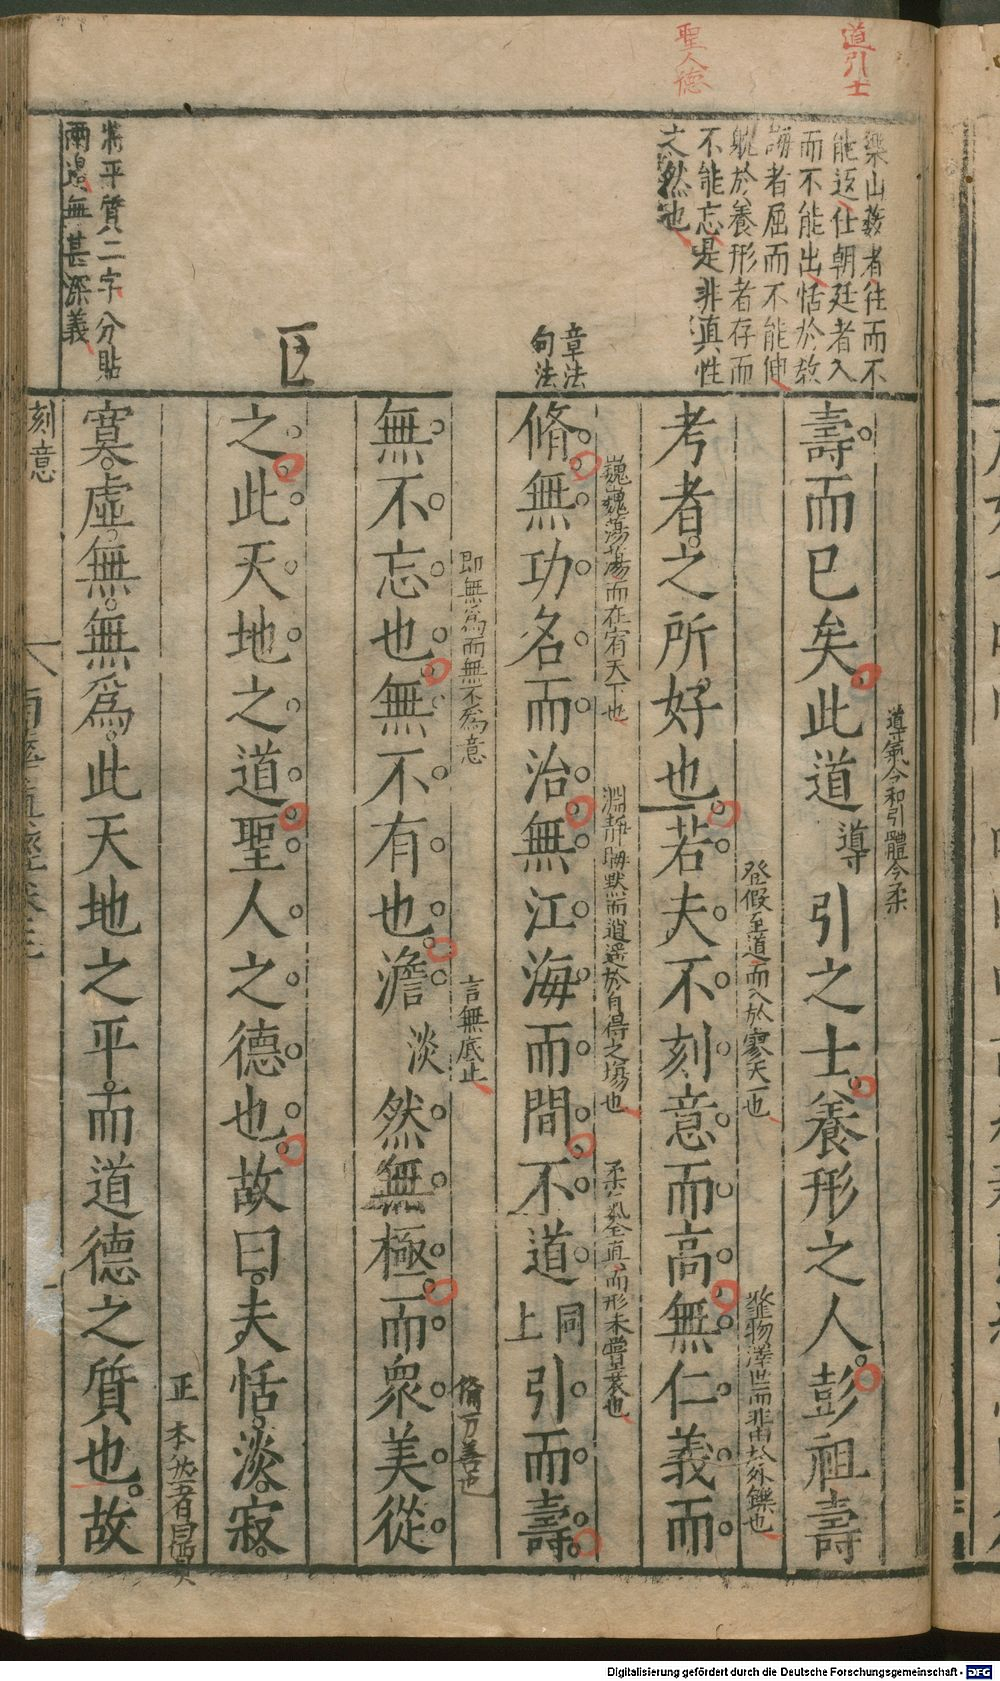 道引士
聖人德
樂山藪者往而不
能返仕朝廷者入
而不能出恬於教
誨者屈而不能伸
躭於養形者存而
不能忘是非真性
之然也
章法
句法
將平質二字分貼
兩邊無甚深義
導氣令和引體令柔
壽而已矣此道導引之士養形之人彭祖壽
登假至道而入於寥天一也
虀物澤世而非由於外鑠也
考者之所好也若夫不刻意而高無仁義而
巍巍蕩蕩而在宥天下也
淵靜晦默而逍遥於自得之場也
柔氣全真而形未嘗衰也
脩無功名而治無江海而間不道同上引而壽
即無為而無不為意
言無底止
備万善也
無不忘也無不有也澹淡然無極而衆美從
之此天地之道聖人之德也故曰夫恬淡寂
正
寞虛無無為此天地之平而道德之質也故
刻意
Digitalisierung gefördert durch die Deutsche Forschungsgemeinschaft - DFG